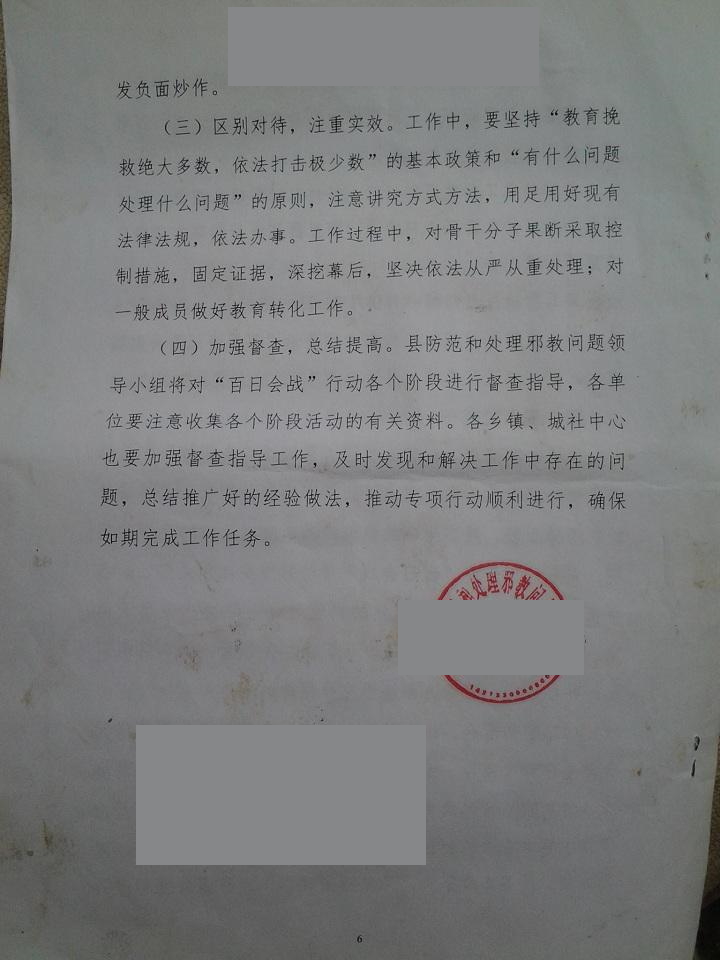 发负面炒作。
（三）区别对待，注重实效。工作中，要坚持“教育挽
救绝大多数，依法打击极少数”的基本政策和“有什么问题
处理什么问题”的原则，注意讲究方式方法，用足用好现有
法律法规，依法办事。工作过程中，对骨干分子果断采取控
制措施，固定证据，深挖幕后，坚决依法从严从重处理；对
一般成员做好教育转化工作。
（四）加强督查，总结提高。县防范和处理邪教问题领
导小组将对“百日会战”行动各个阶段进行督查指导，各单
位要注意收集各个阶段活动的有关资料。各乡镇、城社中心
也要加强督查指导工作，及时发现和解决工作中存在的问
题，总结推广好的经验做法，推动专项行动顺利进行，确保
如期完成工作任务。
和处理邪教问
6